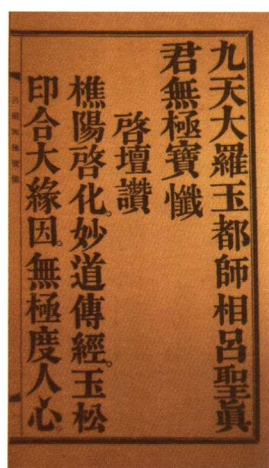 九天大羅玉都師相呂聖眞
君無極寶懺
啓壇讚
樵陽啓化。妙道傳經。玉松
印合大緣因。無極度人心